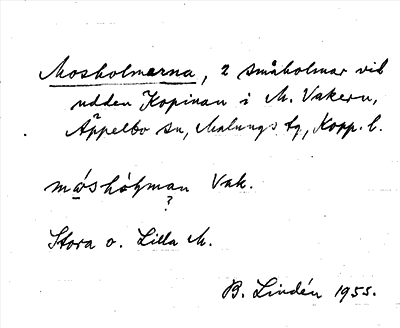 Mosholmarna, 2 småholmar vid
udden Kopinau i M. Vakern,
Äppelbo sn, Malungs tg, Kopp. l.
Vak.
?
Stora o. Lilla M.
B. Lindén 1955.